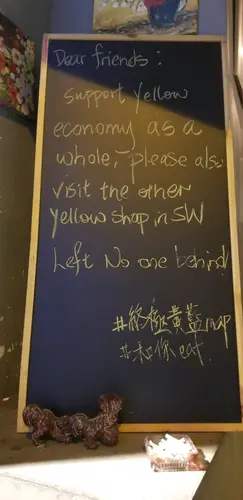 Dear friends :
support yellow
economy as a
whole, please also
visit the other
yellow shop in SW
Left No one behind
#終極黃藍map
#和你eat